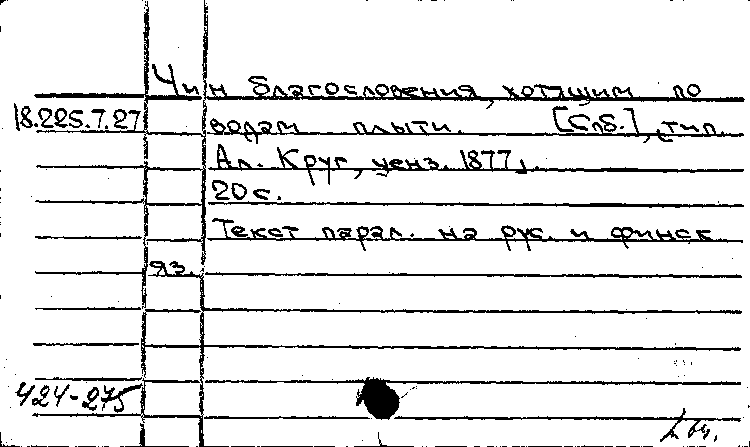 Чин благословения, хотящим по
18.225.7.27 водам плыти. [Спб.], тип.
Ал. Круг, ценз. 1877.
20 с.
Текст парал. на рус. и финск
яз.
424-275